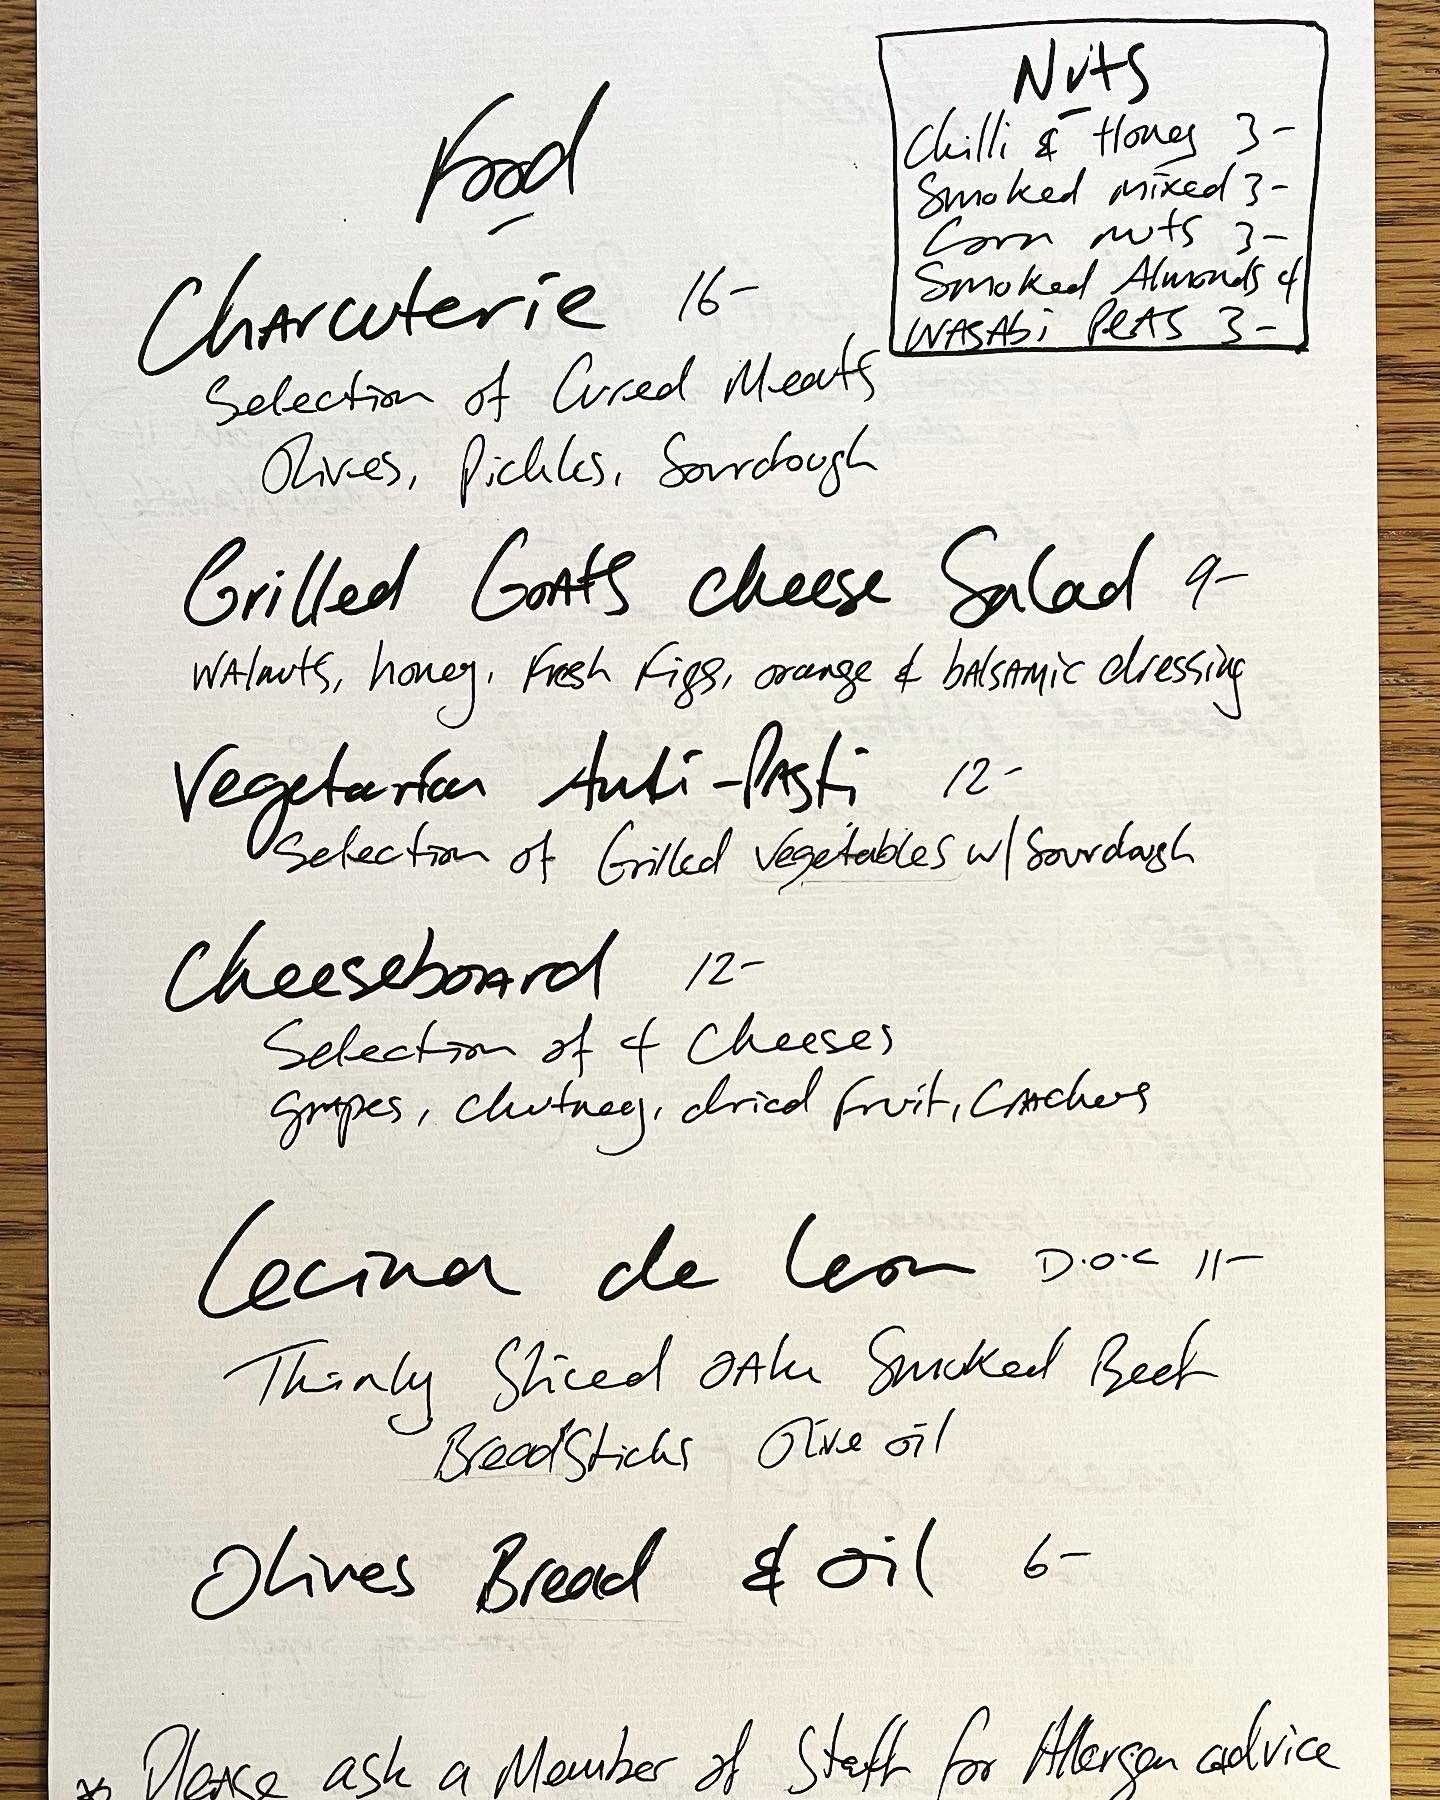 Food
Charcuterie 16-
Selection of Cured Meats
Olives, Pickles, Sourdough
Grilled Goats cheese Salad 9-
Walnuts, honey, Fresh Figs, orange & balsamic dressing
Vegetarian Anti-Pasti 12-
Selection of Grilled vegetables w/ Sourdough
Cheeseboard 12-
Selection of 4 Cheeses
grapes, chutney, dried fruit, Crackers
Cecina de Leon D.O.C 11-
Thinly Sliced oak Smoked Beef
Breadsticks Olive oil
Olives Bread & oil 6-
* Please ask a Member of Staff for Allergen advice
Nuts
Chilli & Honey 3-
Smoked mixed 3-
Corn nuts 3-
Smoked Almonds 4
Wasabi Peas 3-